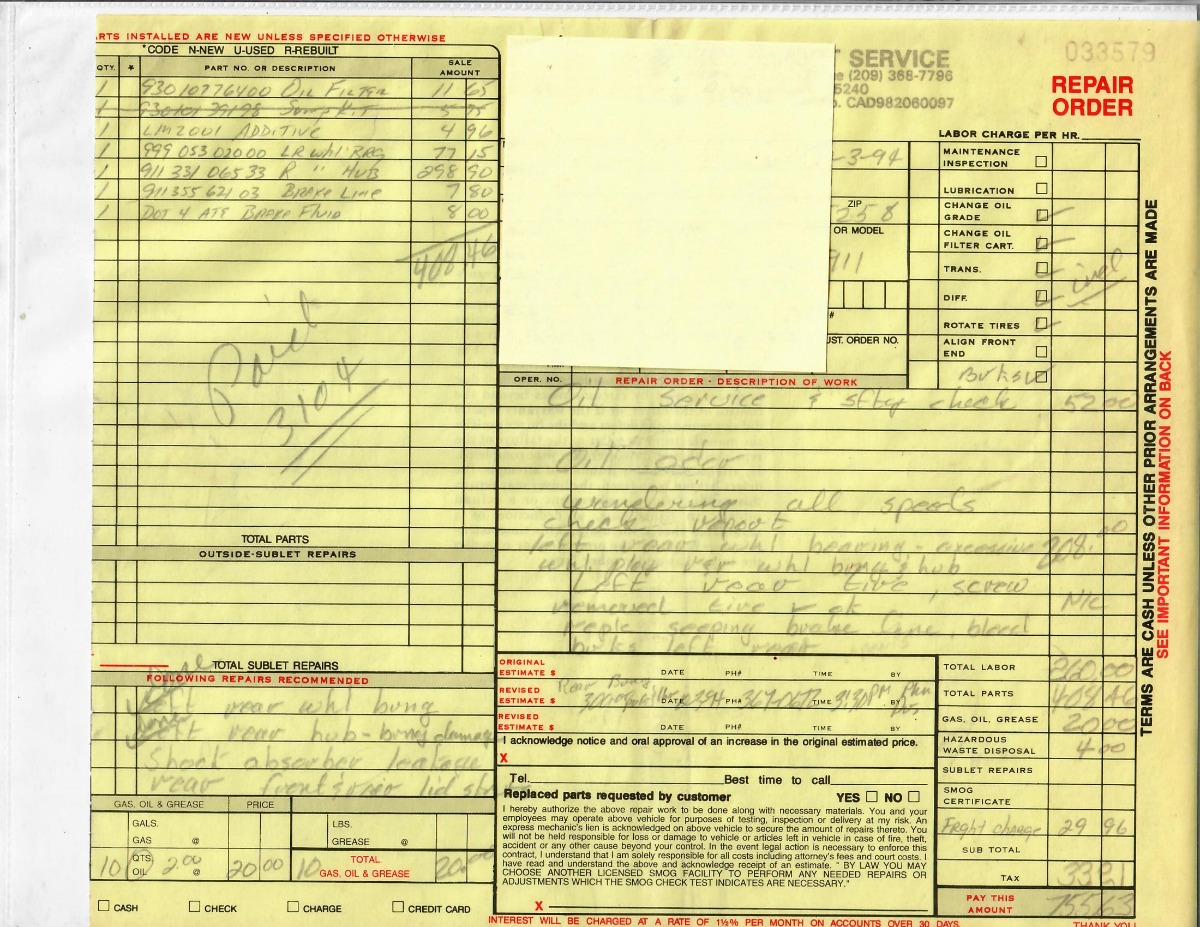 ARTS INSTALLED ARE NEW UNLESS SPECIFIED OTHERWISE
*CODE N-NEW U-USED R-REBUILT
QTY. * PART NO. OR DESCRIPTION SALE AMOUNT
1 93010776400 OIL FILTER 11 65
1 Sump Kit 5 75
1 LM2001 ADDITIVE 4 96
1 999 053 02000 LR whl BRG 77 15
1 911 331 065 33 R " HUB 298 90
1 911 355 621 03 Brake Line 7 80
1 DOT 4 ATE Brake Fluid 8 00
408 46
Paid
3104
TOTAL PARTS
OUTSIDE-SUBLET REPAIRS
TOTAL SUBLET REPAIRS
FOLLOWING REPAIRS RECOMMENDED
left rear whl brng
left rear hub-brng damage
Shock absorber leakage
rear front & rear lid
GAS, OIL & GREASE PRICE
GALS. GAS @
LBS. GREASE @
10 QTS. OIL 2.00 @ 20 00 10 TOTAL GAS, OIL & GREASE 20 00
CASH CHECK CHARGE CREDIT CARD
SERVICE
e (209) 368-7796
5240
o. CAD982060097
033579
REPAIR
ORDER
LABOR CHARGE PER HR.
-3-94
ZIP
258
OR MODEL
911
#
UST. ORDER NO.
MAINTENANCE INSPECTION
LUBRICATION
CHANGE OIL GRADE
CHANGE OIL FILTER CART.
TRANS.
DIFF.
incl
ROTATE TIRES
ALIGN FRONT END
OPER. NO. REPAIR ORDER - DESCRIPTION OF WORK
Oil Service & sfty check 52 00
Oil odor
wandering all speeds
check report
left rear whl bearing - excessive 208.00
whl play rer whl brng & hub
Left rear tire, screw
removed tire ok N/C
seeping brake line bleed
left rear
ORIGINAL ESTIMATE $ DATE PH# TIME BY
REVISED ESTIMATE $ Rear Brng DATE PH# 367-0672 TIME 3:30 PM BY
REVISED ESTIMATE $ DATE PH# TIME BY
I acknowledge notice and oral approval of an increase in the original estimated price.
X
Tel. Best time to call
Replaced parts requested by customer YES NO
I hereby authorize the above repair work to be done along with necessary materials. You and your
employees may operate above vehicle for purposes of testing, inspection or delivery at my risk. An
express mechanic's lien is acknowledged on above vehicle to secure the amount of repairs thereto. You
will not be held responsible for loss or damage to vehicle or articles left in vehicle in case of fire, theft,
accident or any other cause beyond your control. In the event legal action is necessary to enforce this
contract, I understand that I am solely responsible for all costs including attorney's fees and court costs. I
have read and understand the above and acknowledge receipt of an estimate. " BY LAW YOU MAY
CHOOSE ANOTHER LICENSED SMOG FACILITY TO PERFORM ANY NEEDED REPAIRS OR
ADJUSTMENTS WHICH THE SMOG CHECK TEST INDICATES ARE NECESSARY."
X
TOTAL LABOR 260.00
TOTAL PARTS 408 46
GAS, OIL, GREASE 20 00
HAZARDOUS WASTE DISPOSAL 4 00
SUBLET REPAIRS
SMOG CERTIFICATE
Frght charge 29 96
SUB TOTAL
TAX 33 21
PAY THIS AMOUNT 755 63
INTEREST WILL BE CHARGED AT A RATE OF 1½% PER MONTH ON ACCOUNTS OVER 30 DAYS.
THANK YOU
TERMS ARE CASH UNLESS OTHER PRIOR ARRANGEMENTS ARE MADE
SEE IMPORTANT INFORMATION ON BACK